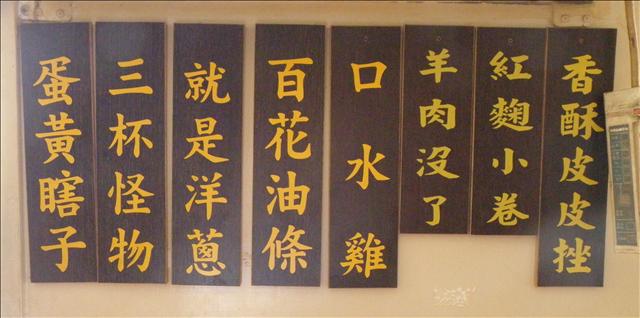 香酥皮皮挫
紅麴小卷
羊肉沒了
口水雞
百花油條
就是洋蔥
三杯怪物
蛋黃瞎子